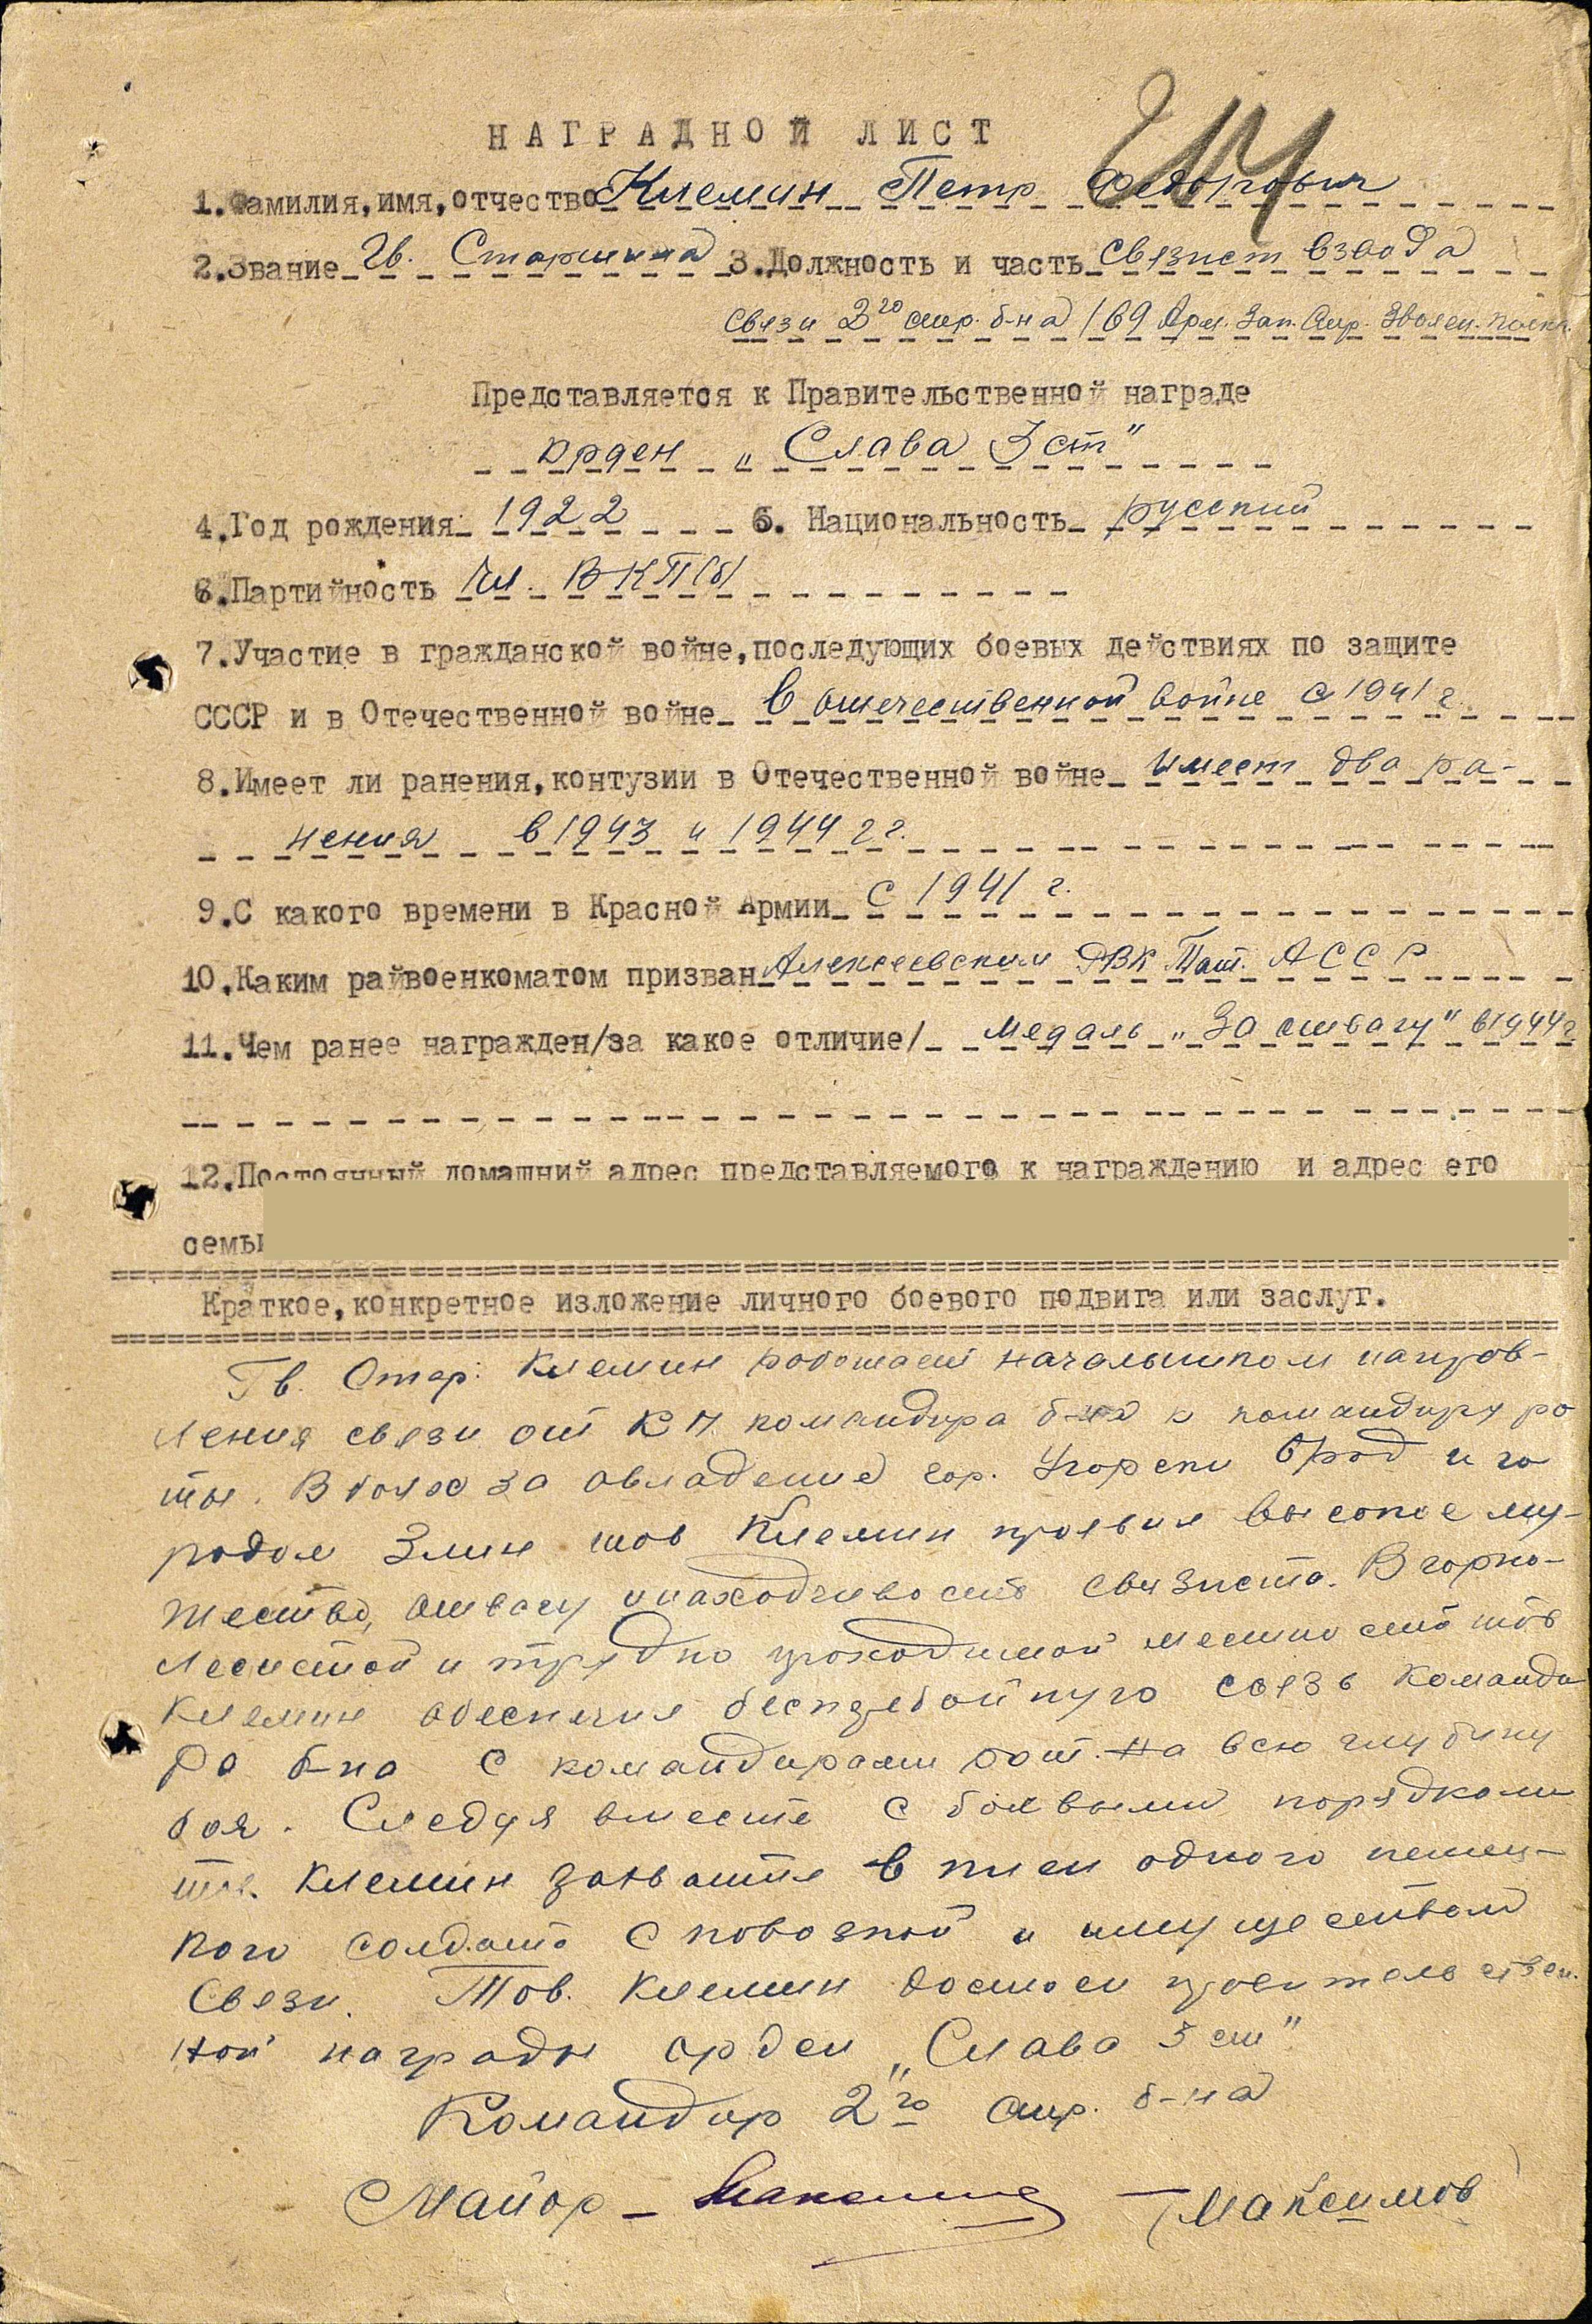 НАГРАДНОЙ ЛИСТ
1.Фамилия,имя,отчество Клемин Петр Федорович
2.Звание Гв. Старшина 3.Должность и часть связист взвода
связи 2го стр. б-на 169 Арм. Зап. Стр. Зволен. полка
Представляется к Правительственной награде
орден „Слава 3 ст"
4.Год рождения 1922 5. Национальность русский
6.Партийность Чл. ВКП(б)
7.Участие в гражданской войне,последующих боевых действиях по защите
СССР и в Отечественной войне в отечественной войне с 1941 г.
8.Имеет ли ранения,контузии в Отечественной войне имеет два ра-
нения в 1943 и 1944 гг.
9.С какого времени в Красной Армии с 1941 г.
10.Каким райвоенкоматом призван Алексеевским РВК Тат. АССР
11.Чем ранее награжден/за какое отличие/ медаль „За отвагу" в 1944 г.
12.Постоянный домашний адрес представляемого к награждению и адрес его
семьи
Краткое,конкретное изложение личного боевого подвига или заслуг.
Гв. Стар. Клемин работает начальником направ-
ления связи от КП командира б-на к командиру ро
ты. В боях за овладение гор. Угорски Брод и го
родом Злин тов Клемин проявил высокое му-
жество, отвагу и находчивость связиста. В горно-
лесистой и трудно проходимой местность тов
Клемин обеспечил бесперебойную связь команди
ра б-на с командирами рот. на всю глубину
боя. Следуя вместе с боевыми порядками
тов. Клемин захватил в плен одного немец-
кого солдата с повозкой и имуществом
Связи. Тов. Клемин достоен правительствен.
ной награды орден „Слава 3 ст"
Командир 2го стр. б-на
Майор – Максимов
Максимов